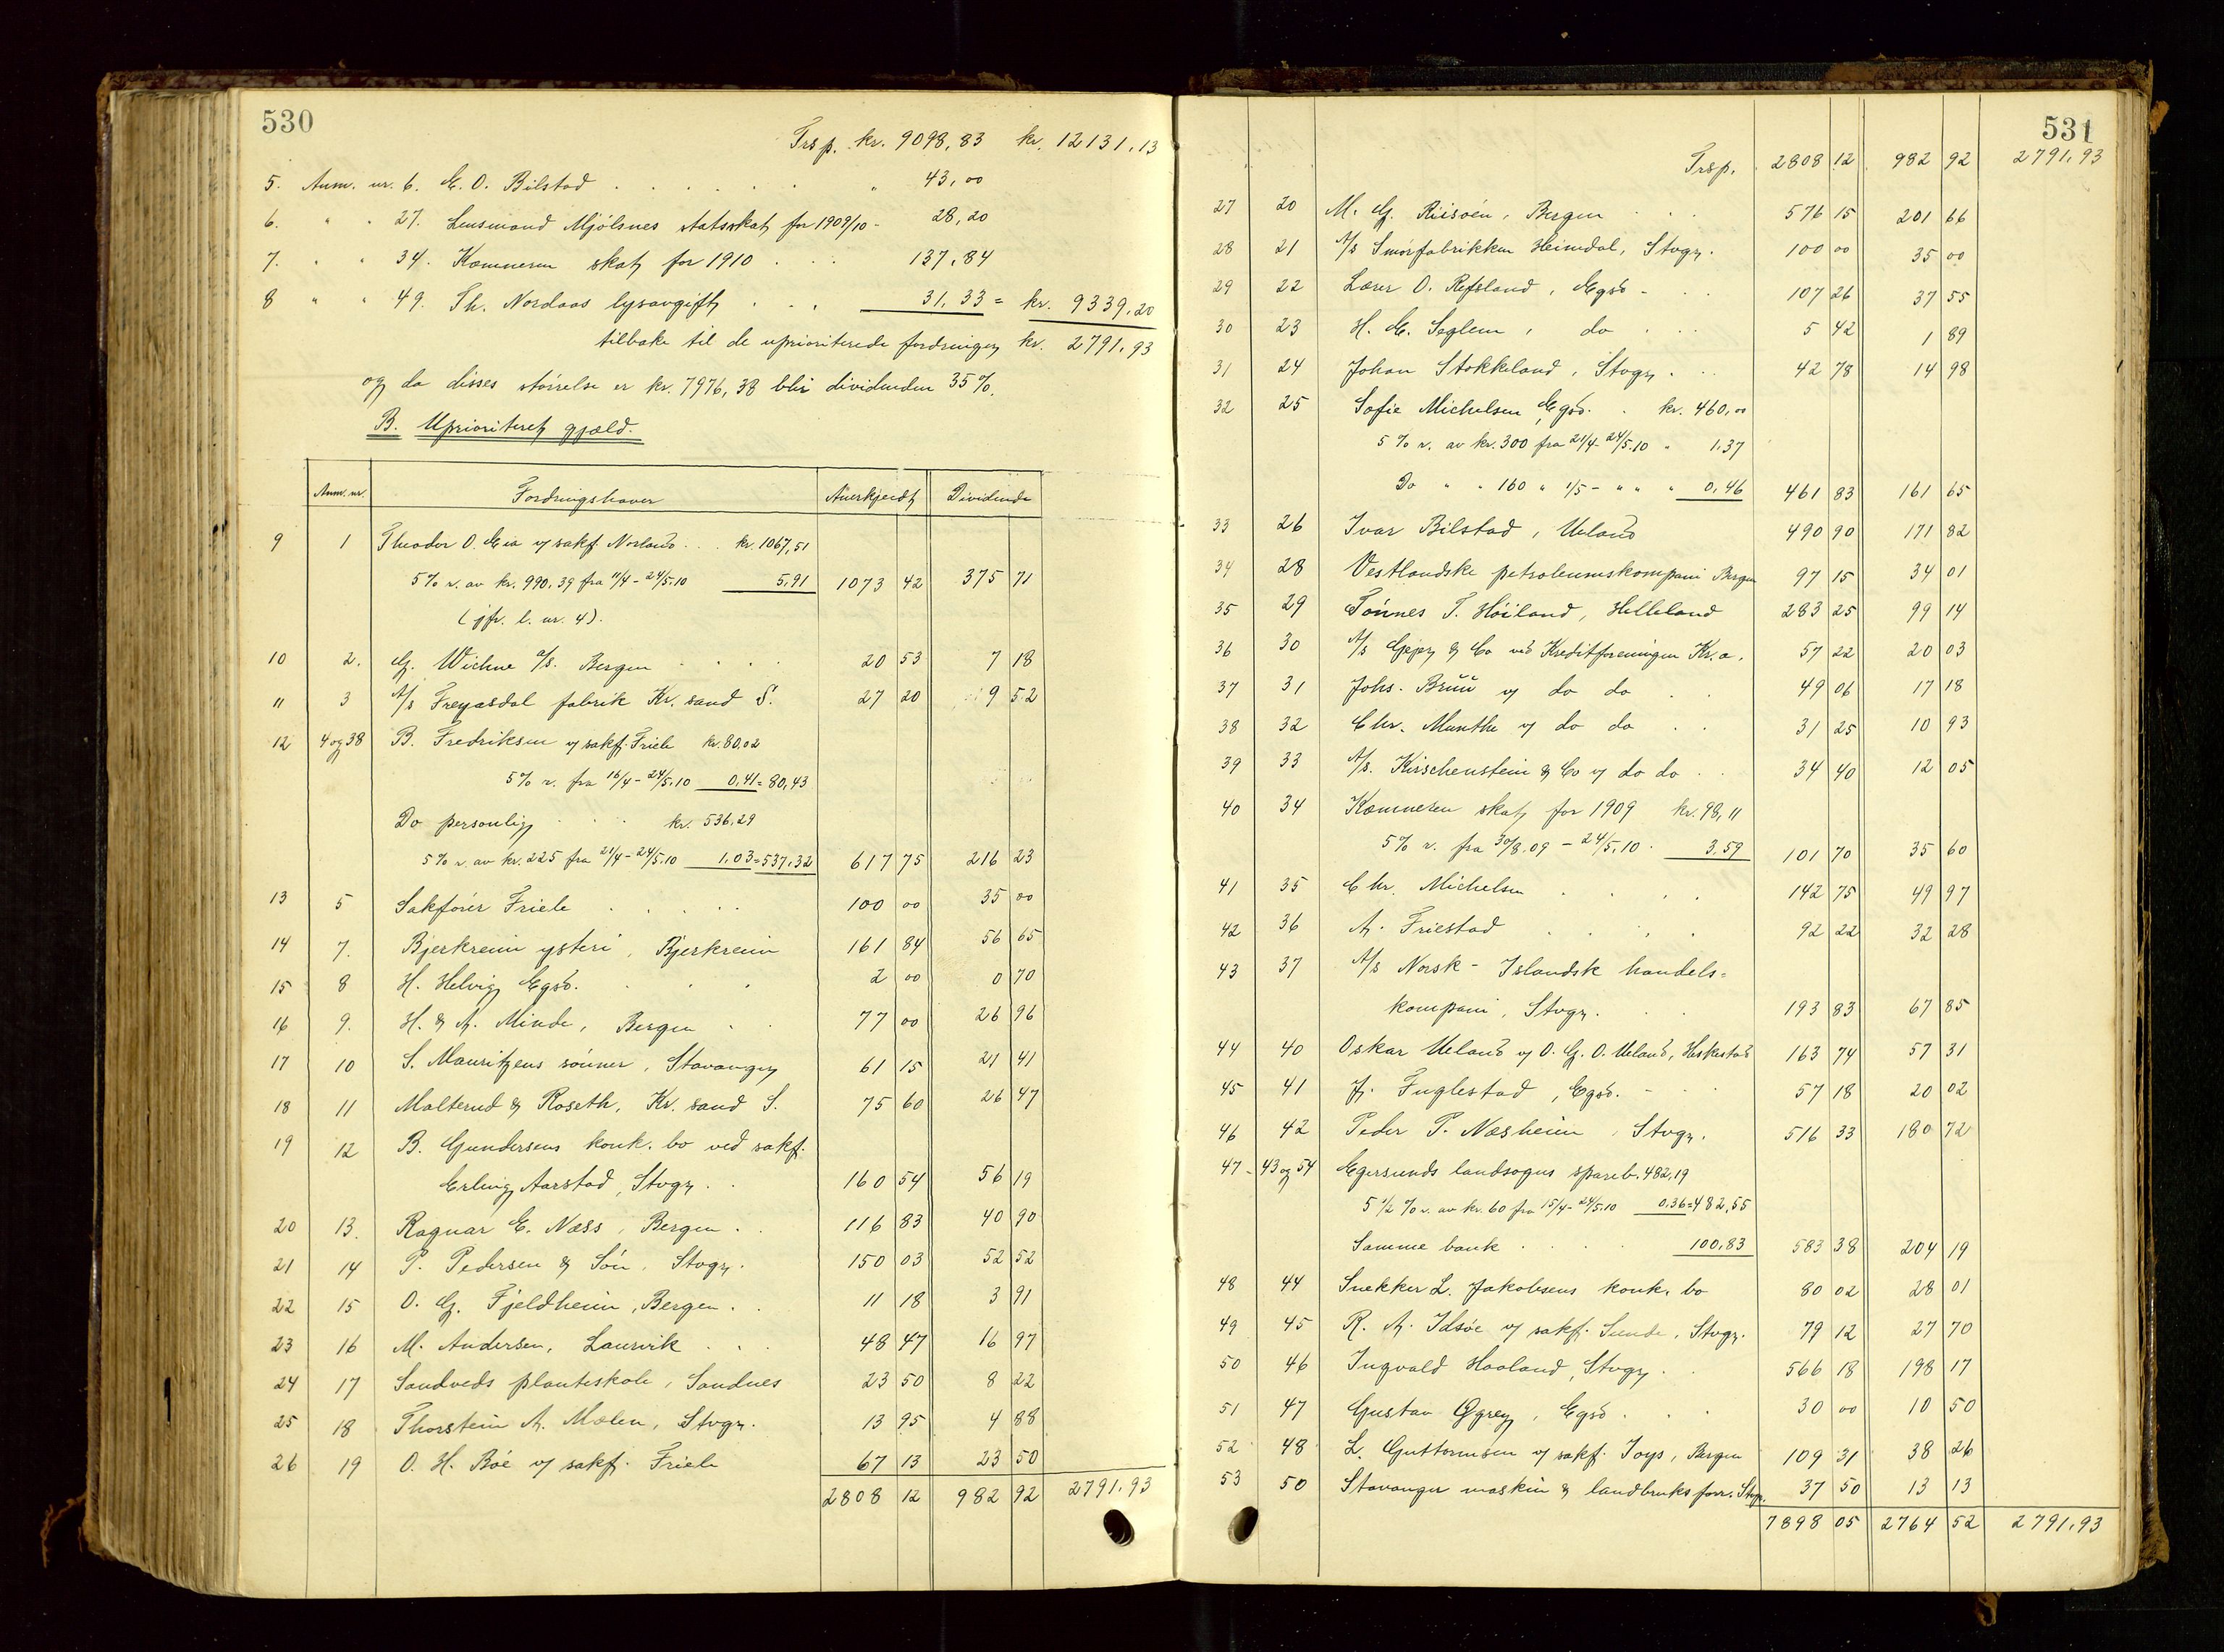 530
Trsp. kr. 9098,83 kr. 12131,13
5. Anm. nr. 6. E. O. Bilstad . . . . . . " 43,00
6. " " 27. Lensmand Mjölsnes statsskat for 1909/10 - 28,20
7. " " 34. Kæmneren skat for 1910 . . . 137,84
8 " " 49. Th. Nordaas lysavgift . . . 31,33 = kr. 9339,20
tilbake til de uprioriterede fordringer kr. 2791,93
og da disses störrelse er kr. 7976,38 blir dividenden 35%.
B. Uprioritert gjæld.
Anm. nr. Fordringshaver Anerkjendt Dividende
9 1 Theodor O. Eia v/ sakf. Norland . . . kr. 1067,51
5% r. av kr. 990,39 fra 11/4 - 24/5.10 5,91 1073 42 375 71
(jfr. l. nr. 4).
10 2. G. Wichne a/s. Bergen . . . . 20 53 7 18
11 3 A/s Freyasdal fabrik Kr.sand S. 27 20 9 52
12 4 og 38 B. Fredriksen v/ sakf. Friele kr. 80,02
5% r. fra 16/4 - 24/5.10 0,41 = 80,43
Do personlig . . . kr. 536,29
5% r. av kr. 225 fra 21/4 - 24/5.10 1,03 = 537,32 617 75 216 23
13 5 Sakförer Friele . . . . . 100 00 35 00
14 7. Bjerkreim ysteri, Bjerkreim 161 84 56 65
15 8 H. Helvig Egsd. . . . 2 00 0 70
16 9. H. & A. Minde, Bergen . . 77 00 26 96
17 10 S. Mauritzens sönner, Stavanger 61 15 21 41
18 11 Malterud & Roseth, Kr.sand S. 75 60 26 47
19 12 B. Gundersens konk. bo ved sakf.
Erling Aarstad, Stvgr. . 160 54 56 19
20 13. Ragnar E. Næss, Bergen . . 116 83 40 90
21 14 P. Pedersen & Sön, Stvgr. 150 03 52 52
22 15 O. G. Fjeldheim, Bergen . . 11 18 3 91
23 16 M. Andersen, Laurvik . . . 48 47 16 97
24 17 Sandveds planteskole, Sandnes 23 50 8 22
25 18 Thorstein A. Mælen, Stvgr. 13 95 4 88
26 19 O. H. Böe v/ sakf. Friele 67 13 23 50
2808 12 982 92 2791,93
531
Trsp. 2808 12 982 92 2791,93
27 20 M. G. Riisöen, Bergen . . . 576 15 201 66
28 21 A/s Smörfabrikken Heimdal, Stvgr. 100 00 35 00
29 22 Lærer O. Refsland, Egsd - . . 107 26 37 55
30 23 H. E. Seglem, do . . . 5 42 1 89
31 24 Johan Stokkeland, Stvgr. . . 42 78 14 98
32 25 Sofie Michelsen Egsd. . kr. 460,00
5% r. av kr. 300 fra 21/4 - 24/5.10 " 1,37
Do " " 160 " 1/5 - " " " 0,46 461 83 161 65
33 26 Ivar Bilstad, Ueland 490 90 171 82
34 28 Vestlandske petroleumskompani Bergen 97 15 34 01
35 29 Tönnes T. Höiland, Helleland 283 25 99 14
36 30 A/s Gjejr & Co ved Kreditforeningen Kr.a. 57 22 20 03
37 31 Johs. Bruu v/ do do . . 49 06 17 18
38 32 Chr. Munthe v/ do do . . 31 25 10 93
39 33 A/s. Kirschenstein & Co v/ do do . . 34 40 12 05
40 34 Kæmneren skat for 1909 kr. 98,11
5% r. fra 30/8.09 - 24/5.10 . 3,59 101 70 35 60
41 35 Chr. Michelsen . . . 142 75 49 97
42 36 A. Friestad . . . . 92 22 32 28
43 37 A/s Norsk - Islandsk handels=
kompani, Stvgr. . . 193 83 67 85
44 40 Oskar Ueland v/ O. G. O. Ueland, Heskestad 163 74 57 31
45 41 J. Fuglestad, Egsd. - . . 57 18 20 02
46 42 Peder P. Næsheim, Stvgr. 516 33 180 72
47 - 43 og 54 Egersunds landsogns spareb. 482,19
5 1/2 % r. av kr. 60 fra 15/4 - 24/5.10 0,36 = 482,55
Samme bank . . . . 100,83 583 38 204 19
48 44 Snekker L. Jakobsens konk. bo 80 02 28 01
49 45 R. A. Idsöe v/ sakf. Sunde, Stvgr. 79 12 27 70
50 46 Ingvald Haaland, Stvgr. . . 566 18 198 17
51 47 Gustav Ggrey, Egsd . . . 30 00 10 50
52 48 L. Guttormsen v/ sakf. Joys, Bergen 109 31 38 26
53 50 Stavanger maskin & landbruksforr. Stvgr. 37 50 13 13
7898 05 2764 52 2791,93